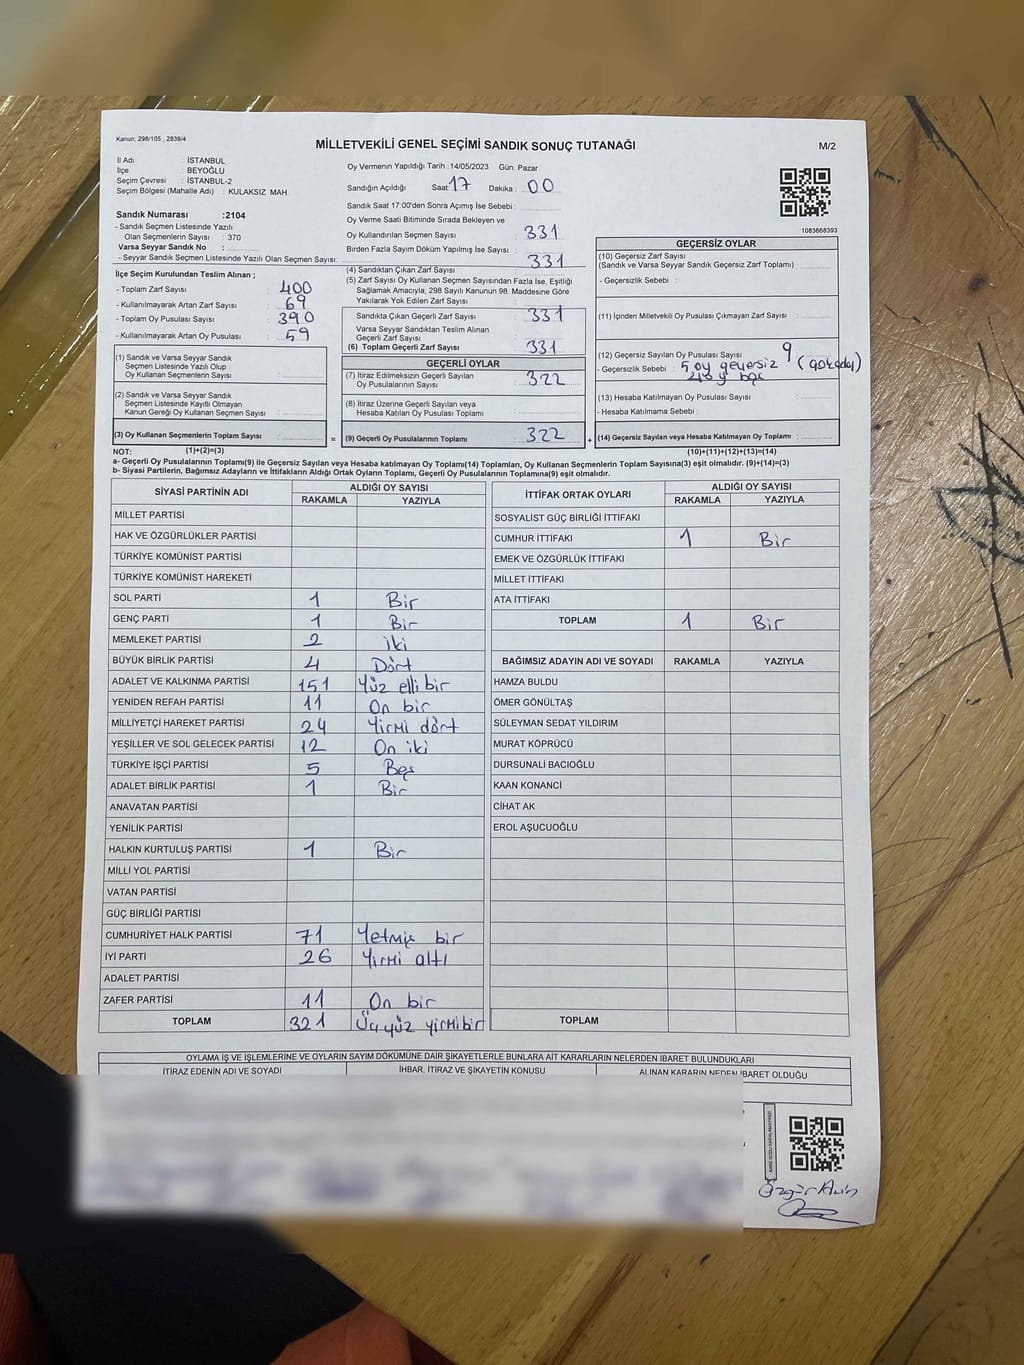 Kanun: 298/105 , 2839/4
MİLLETVEKİLİ GENEL SEÇİMİ SANDIK SONUÇ TUTANAĞI
M/2
İl Adı : İSTANBUL
İlçe : BEYOĞLU
Seçim Çevresi : İSTANBUL-2
Seçim Bölgesi (Mahalle Adı) : KULAKSIZ MAH.
Sandık Numarası :2104
- Sandık Seçmen Listesinde Yazılı
Olan Seçmenlerin Sayısı : 370
Varsa Seyyar Sandık No :
- Seyyar Sandık Seçmen Listesinde Yazılı Olan Seçmen Sayısı:
İlçe Seçim Kurulundan Teslim Alınan ;
- Toplam Zarf Sayısı : 400
- Kullanılmayarak Artan Zarf Sayısı : 69
- Toplam Oy Pusulası Sayısı : 390
- Kullanılmayarak Artan Oy Pusulası : 59
(1) Sandık ve Varsa Seyyar Sandık
Seçmen Listesinde Yazılı Olup
Oy Kullanan Seçmenlerin Sayısı :
(2) Sandık ve Varsa Seyyar Sandık
Seçmen Listesinde Kayıtlı Olmayan
Kanun Gereği Oy Kullanan Seçmen Sayısı :
(3) Oy Kullanan Seçmenlerin Toplam Sayısı :
Oy Vermenin Yapıldığı Tarih :14/05/2023 Gün: Pazar
Sandığın Açıldığı Saat: 17 Dakika : 00
Sandık Saat 17:00'den Sonra Açımış İse Sebebi :
Oy Verme Saati Bitiminde Sırada Bekleyen ve
Oy Kullandırılan Seçmen Sayısı : 331
Birden Fazla Sayım Döküm Yapılmış İse Sayısı :
(4) Sandıktan Çıkan Zarf Sayısı : 331
(5) Zarf Sayısı Oy Kullanan Seçmen Sayısından Fazla İse, Eşitliği
Sağlamak Amacıyla, 298 Sayılı Kanunun 98. Maddesine Göre
Yakılarak Yok Edilen Zarf Sayısı :
Sandıkta Çıkan Geçerli Zarf Sayısı : 331
Varsa Seyyar Sandıktan Teslim Alınan
Geçerli Zarf Sayısı :
(6) Toplam Geçerli Zarf Sayısı : 331
GEÇERLİ OYLAR
(7) İtiraz Edilmeksizin Geçerli Sayılan
Oy Pusulalarının Sayısı : 322
(8) İtiraz Üzerine Geçerli Sayılan veya
Hesaba Katılan Oy Pusulası Toplamı :
= (9) Geçerli Oy Pusulalarının Toplamı : 322 +
1083668393
GEÇERSİZ OYLAR
(10) Geçersiz Zarf Sayısı
(Sandık ve Varsa Seyyar Sandık Geçersiz Zarf Toplamı) :
- Geçersizlik Sebebi :
(11) İçinden Milletvekili Oy Pusulası Çıkmayan Zarf Sayısı :
(12) Geçersiz Sayılan Oy Pusulası Sayısı : 9
- Geçersizlik Sebebi : 5 oy geçersiz
boş
(13) Hesaba Katılmayan Oy Pusulası Sayısı :
- Hesaba Katılmama Sebebi :
(14) Geçersiz Sayılan veya Hesaba Katılmayan Oy Toplamı :
NOT: (1)+(2)=(3) (10)+(11)+(12)+(13)=(14)
a- Geçerli Oy Pusulalarının Toplamı(9) ile Geçersiz Sayılan veya Hesaba katılmayan Oy Toplamı(14) Toplamları, Oy Kullanan Seçmenlerin Toplam Sayısına(3) eşit olmalıdır. (9)+(14)=(3)
b- Siyasi Partilerin, Bağımsız Adayların ve İttifakların Aldığı Ortak Oyların Toplamı, Geçerli Oy Pusulalarının Toplamına(9) eşit olmalıdır.
SİYASİ PARTİNİN ADI ALDIĞI OY SAYISI
RAKAMLA YAZIYLA
MİLLET PARTİSİ
HAK VE ÖZGÜRLÜKLER PARTİSİ
TÜRKİYE KOMÜNİST PARTİSİ
TÜRKİYE KOMÜNİST HAREKETİ
SOL PARTİ 1 Bir
GENÇ PARTİ 1 Bir
MEMLEKET PARTİSİ 2 iki
BÜYÜK BİRLİK PARTİSİ 4 Dört
ADALET VE KALKINMA PARTİSİ 151 Yüz elli bir
YENİDEN REFAH PARTİSİ 11 On bir
MİLLİYETÇİ HAREKET PARTİSİ 24 Yirmi dört
YEŞİLLER VE SOL GELECEK PARTİSİ 12 On iki
TÜRKİYE İŞÇİ PARTİSİ 5 Beş
ADALET BİRLİK PARTİSİ 1 Bir
ANAVATAN PARTİSİ
YENİLİK PARTİSİ
HALKIN KURTULUŞ PARTİSİ 1 Bir
MİLLİ YOL PARTİSİ
VATAN PARTİSİ
GÜÇ BİRLİĞİ PARTİSİ
CUMHURİYET HALK PARTİSİ 71 Yetmiş bir
İYİ PARTİ 26 Yirmi altı
ADALET PARTİSİ
ZAFER PARTİSİ 11 On bir
TOPLAM 321 Üçyüz yirmibir
İTTİFAK ORTAK OYLARI ALDIĞI OY SAYISI
RAKAMLA YAZIYLA
SOSYALİST GÜÇ BİRLİĞİ İTTİFAKI
CUMHUR İTTİFAKI 1 Bir
EMEK VE ÖZGÜRLÜK İTTİFAKI
MİLLET İTTİFAKI
ATA İTTİFAKI
TOPLAM 1 Bir
BAĞIMSIZ ADAYIN ADI VE SOYADI RAKAMLA YAZIYLA
HAMZA BULDU
ÖMER GÖNÜLTAŞ
SÜLEYMAN SEDAT YILDIRIM
MURAT KÖPRÜCÜ
DURSUNALİ BACIOĞLU
KAAN KONANCİ
CİHAT AK
EROL AŞUCUOĞLU
TOPLAM
OYLAMA İŞ VE İŞLEMLERİNE VE OYLARIN SAYIM DÖKÜMÜNE DAİR ŞİKAYETLERLE BUNLARA AİT KARARLARIN NELERDEN İBARET BULUNDUKLARI
İTİRAZ EDENİN ADI VE SOYADI İHBAR, İTİRAZ VE ŞİKAYETİN KONUSU ALINAN KARARIN NEDEN İBARET OLDUĞU